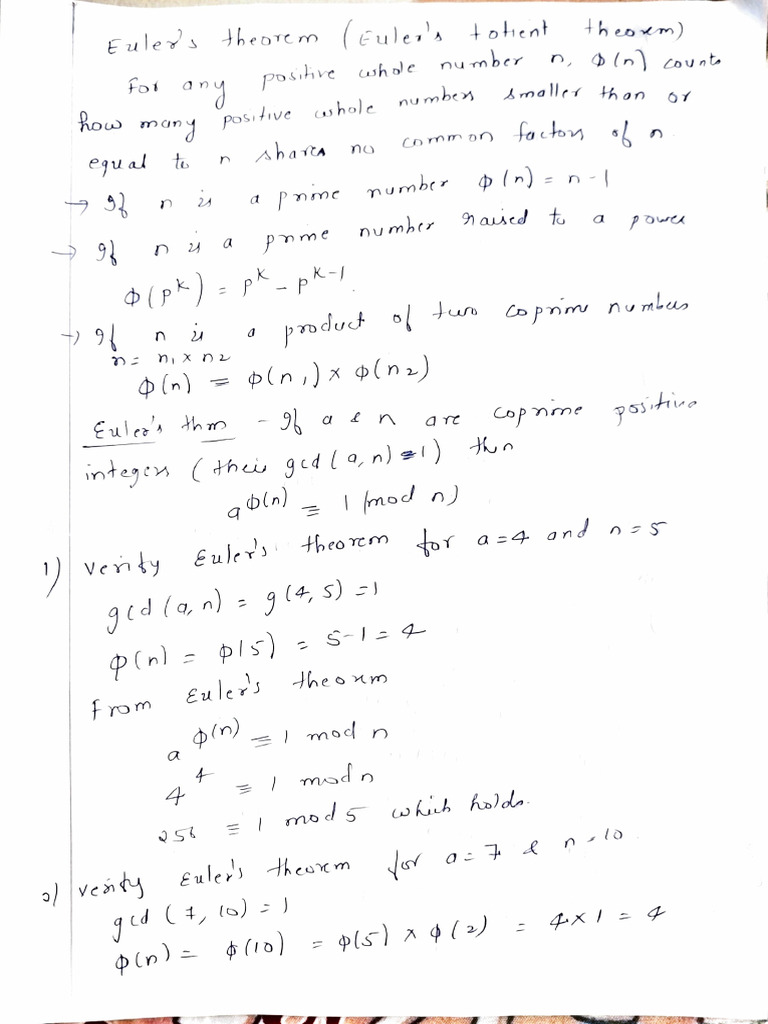 Euler's theorem (Euler's totient theorem)
For any positive whole number n, ϕ(n) counts
how many positive whole numbers smaller than or
equal to n shares no common factors of n.
→ If n is a prime number ϕ(n) = n-1
→ If n is a prime number raised to a power
ϕ(p^k) = p^k - p^k-1.
→ If n is a product of two coprime numbers
n = n1 x n2
ϕ(n) = ϕ(n1) x ϕ(n2)
Euler's thm - If a & n are coprime positive
integers (their gcd (a, n) = 1) then
a^ϕ(n) ≡ 1 (mod n)
1) Verify Euler's theorem for a=4 and n=5
gcd (a, n) = g(4, 5) = 1
ϕ(n) = ϕ(5) = 5-1 = 4
From Euler's theorem
a^ϕ(n) ≡ 1 mod n
4^4 ≡ 1 mod n
256 ≡ 1 mod 5 which holds.
2) Verify Euler's theorem for a=7 & n=10
gcd (7, 10) = 1
ϕ(n) = ϕ(10) = ϕ(5) x ϕ(2) = 4x1 = 4